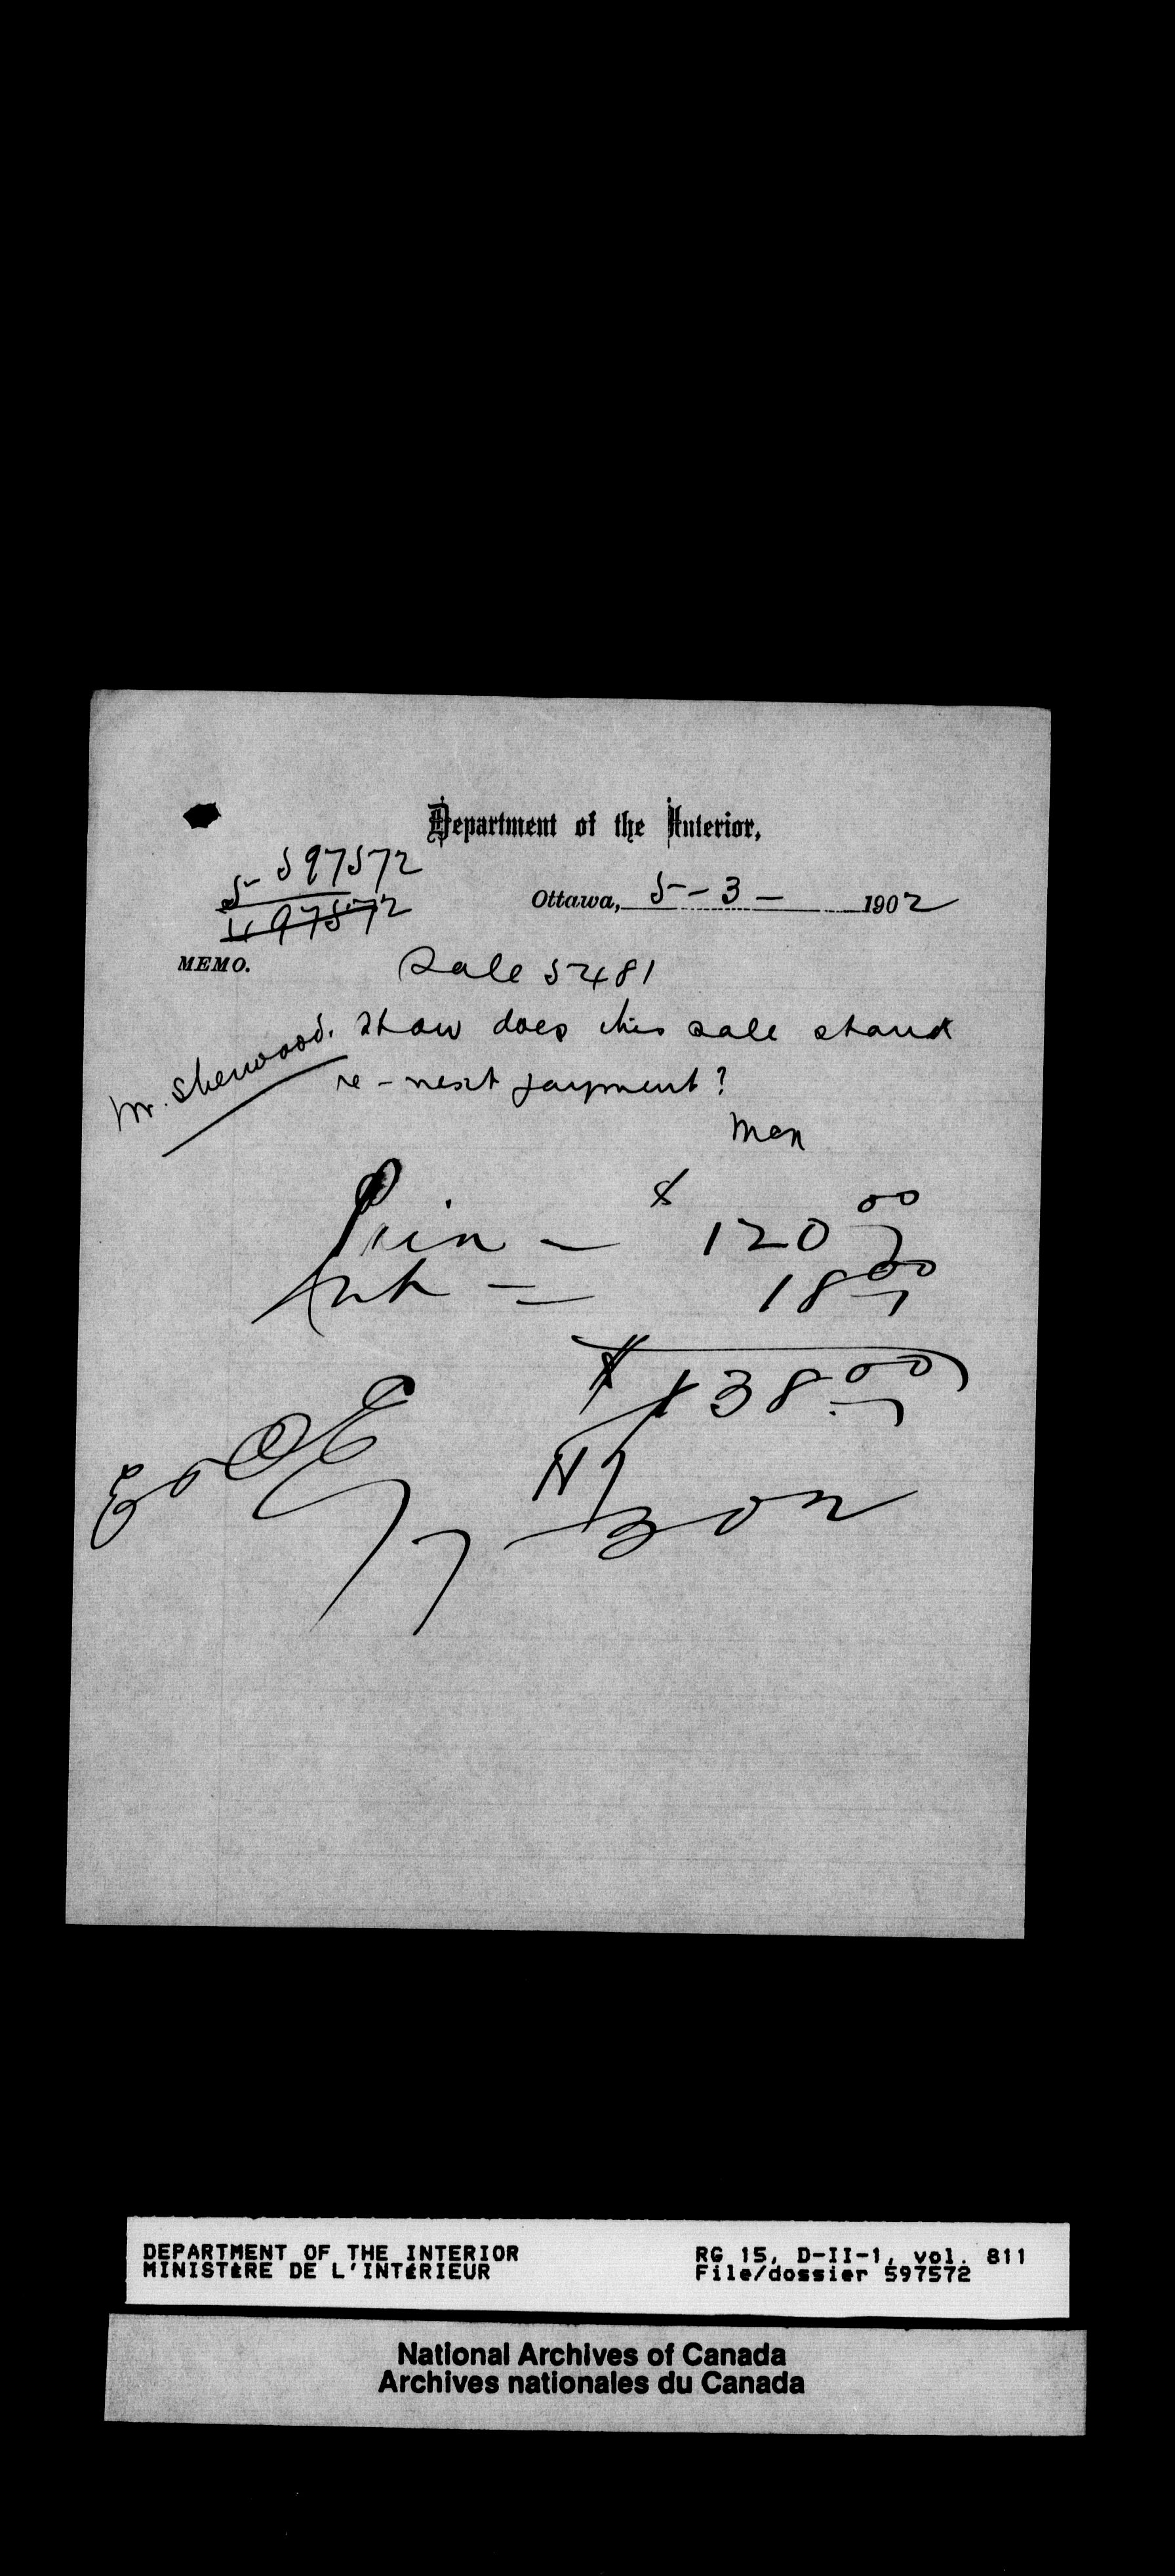 Department of the Interior,
597572
5
497572
Ottawa, 5-3-1902
MEMO.
Sale 5481
Mr. Sherwood. How does this sale stand
re-next payment?
Prin — $ 120 00
Int — 18 00
$ 138.00
7-3 02
DEPARTMENT OF THE INTERIOR
MINISTÈRE DE L'INTÉRIEUR
RG 15, D-II-1, vol. 811
File/dossier 597572
National Archives of Canada
Archives nationales du Canada